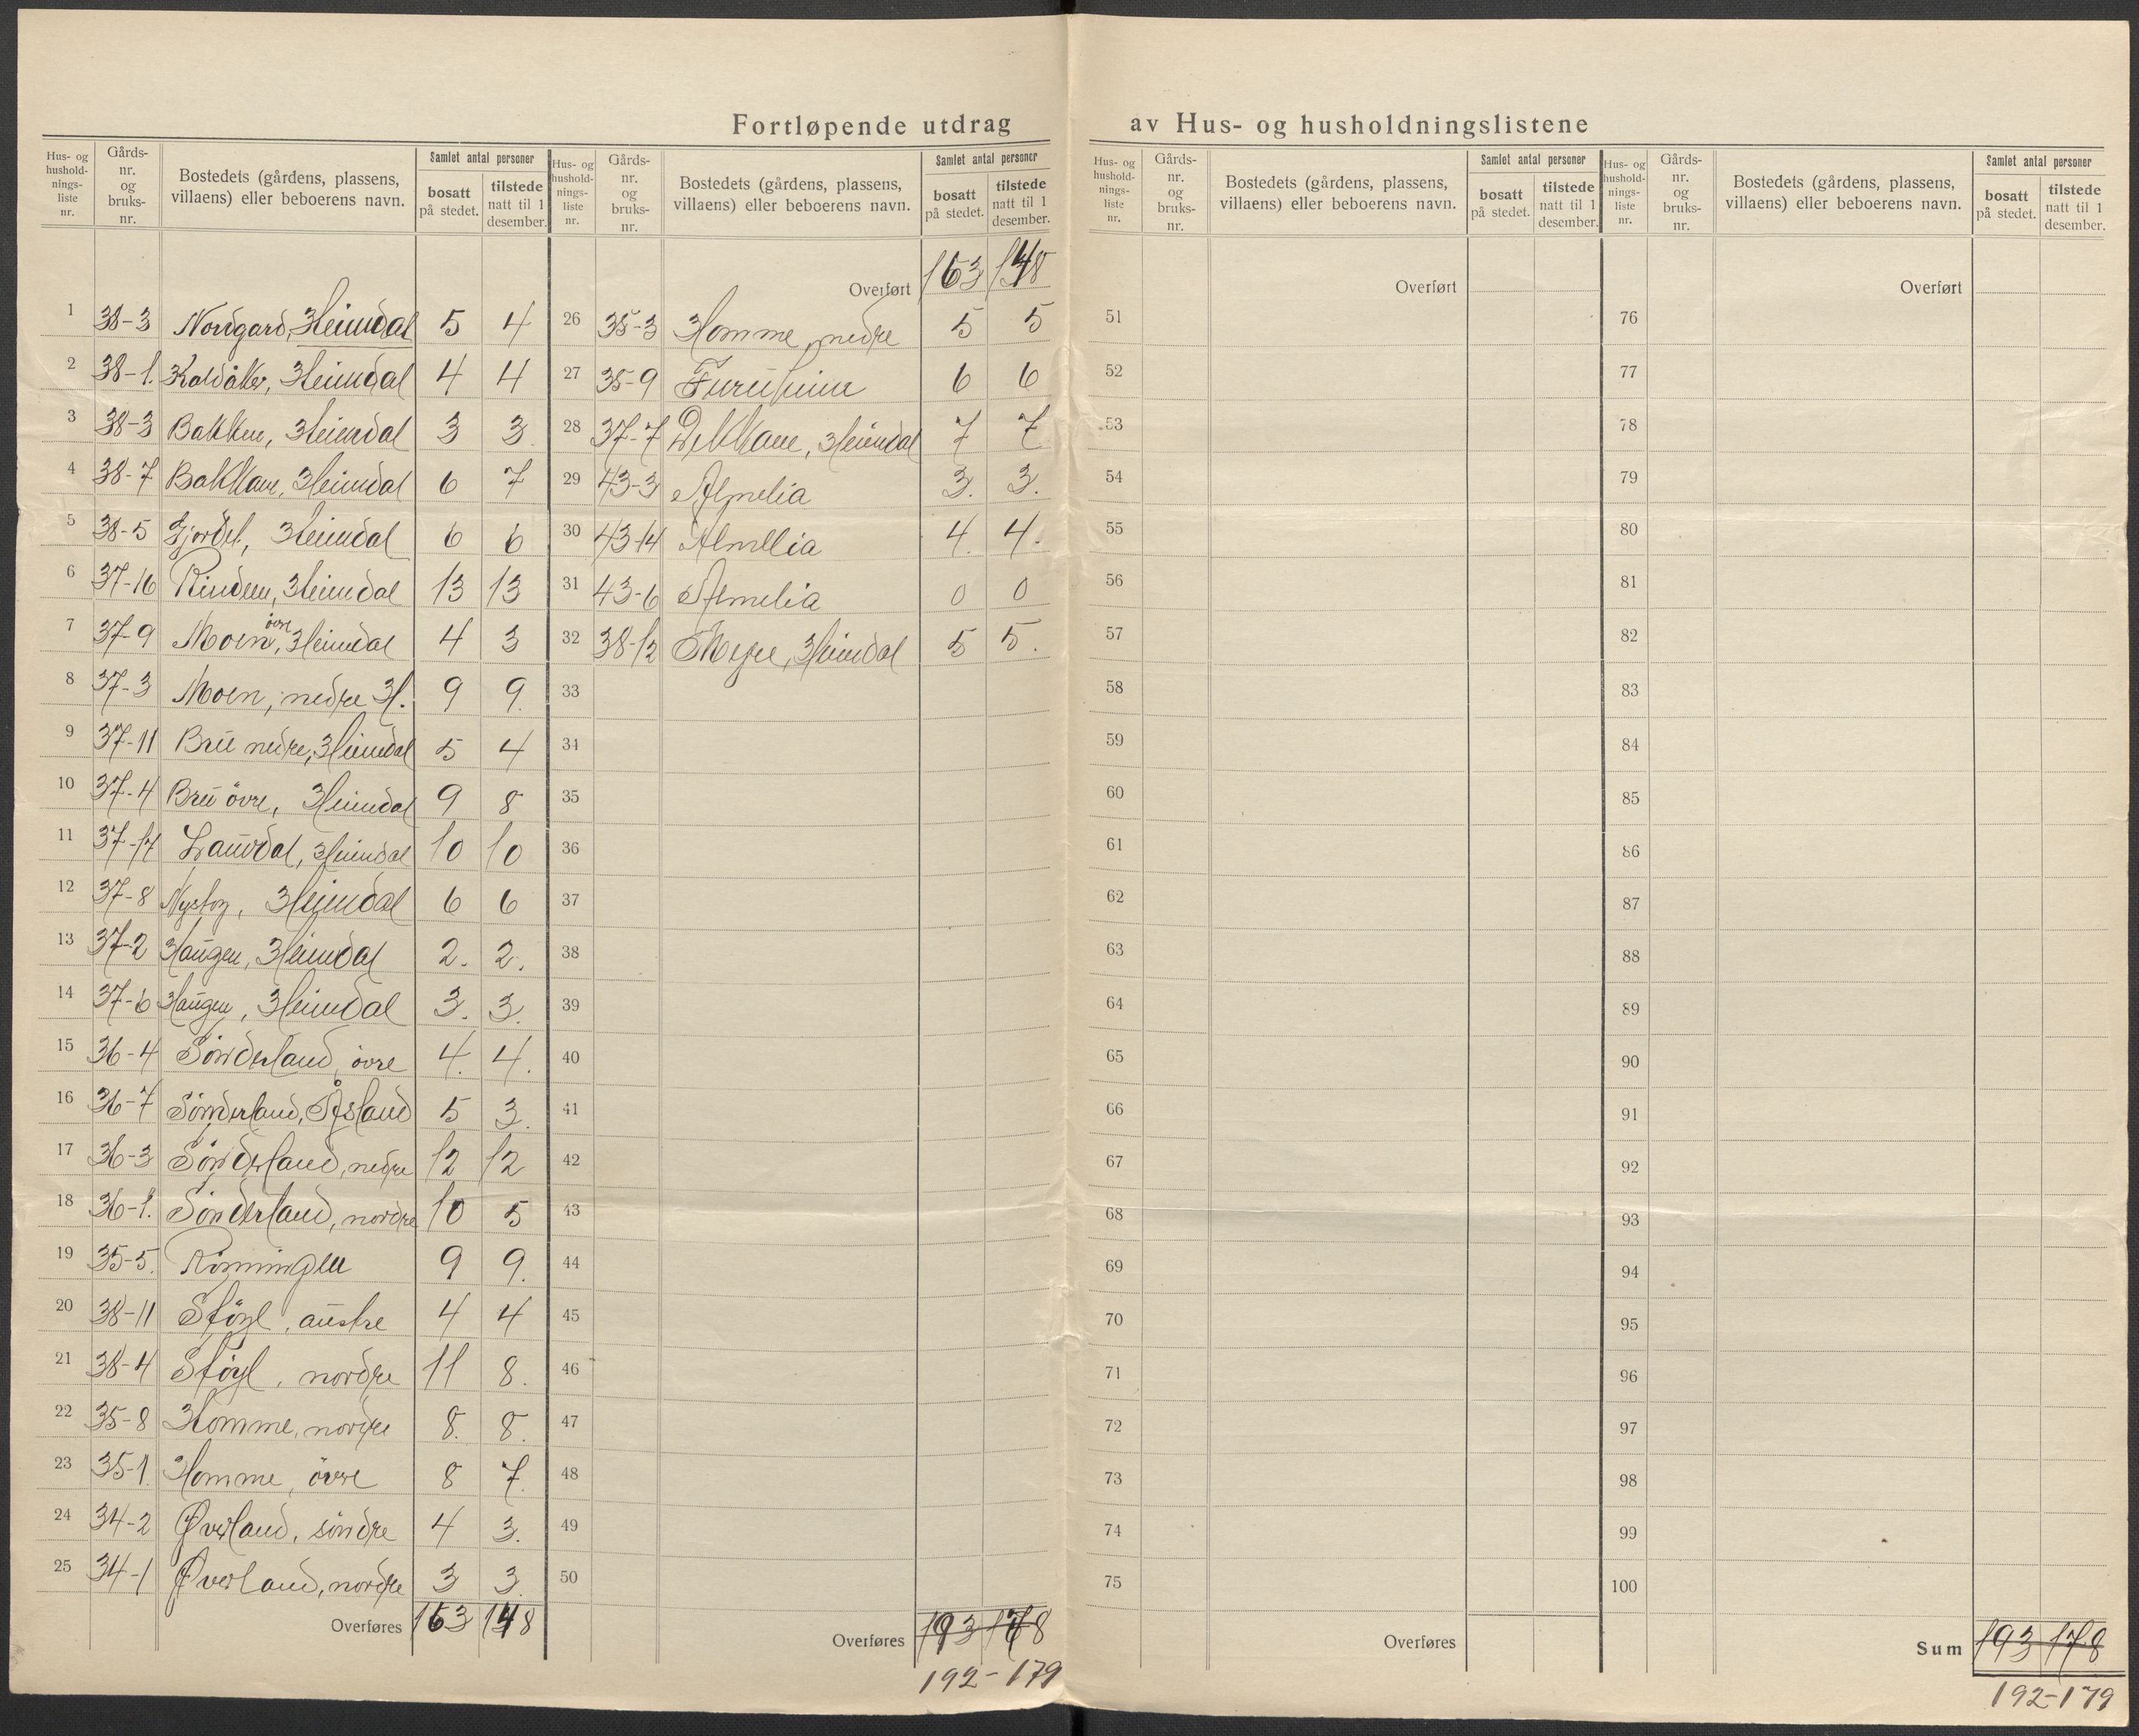 Fortløpende utdrag av Hus- og husholdningslistene
Hus- og hushold- nings- liste nr. Gårds- nr. og bruks- nr. Bostedets (gårdens, plassens, villaens) eller beboerens navn. Samlet antal personer bosatt på stedet. tilstede natt til 1 desember.
1 38-3 Nordgard, Heimdal 5 4
2 38-1. Kaldåker, Heimdal 4 4
3 38-3 Bakken, Heimdal 3 3.
4 38-7 Bakkane, Heimdal 6 7
5 38-5 Gjordet, Heimdal 6 6
6 37-16 Rinden, Heimdal 13 13
7 37-9 Moen, øvre Heimdal 4 3
8 37-3 Moen, nedre H. 9 9.
9 37-11 Bru nedre, Heimdal 5 4
10 37-4 Bru övre, Heimdal 9 8
11 37-17 Laurdal, Heimdal 10 10
12 37-8 Nystog, Heimdal 6 6
13 37-2 Haugen, Heimdal 2. 2.
14 37-6 Haugen, Heimdal 3. 3.
15 36-4 Sönderland, övre 4. 4.
16 36-7 Sönderland, Åsland 5 3.
17 36-3 Sönderland, nedre 12 12
18 36-1. Sönderland, nordre 10 5
19 35-5. Rönningen 9 9.
20 38-11 Stöyl, austre 4 4
21 38-4 Stöyl, nordre 11 8.
22 35-8 Homme, nordre 8. 8.
23 35-1. Homme, övre 8 7.
24 34-2 Øverland, söndre 4 3.
25 34-1 Øverland, nordre 3 3.
Overføres 163 148
Hus- og hushold- nings- liste nr. Gårds- nr. og bruks- nr. Bostedets (gårdens, plassens, villaens) eller beboerens navn. Samlet antal personer bosatt på stedet. tilstede natt til 1 desember.
Overført 163 148
26 35-3 Homme, nedre 5 5
27 35-9 Furuheim 6 6
28 37-7 Dekkane, Heimdal 7 7
29 43-3 Almelia 3. 3.
30 43-14 Almelia 4. 4.
31 43-6 Almelia 0 0
32 38-12 Heimdal 5 5.
33
34
35
36
37
38
39
40
41
42
43
44
45
46
47
48
49
50
Overføres 193 178
192-179
Hus- og hushold- nings- liste nr. Gårds- nr. og bruks- nr. Bostedets (gårdens, plassens, villaens) eller beboerens navn. Samlet antal personer bosatt på stedet. tilstede natt til 1 desember.
Overført
51
52
53
54
55
56
57
58
59
60
61
62
63
64
65
66
67
68
69
70
71
72
73
74
75
Overføres
Hus- og hushold- nings- liste nr. Gårds- nr. og bruks- nr. Bostedets (gårdens, plassens, villaens) eller beboerens navn. Samlet antal personer bosatt på stedet. tilstede natt til 1 desember.
Overført
76
77
78
79
80
81
82
83
84
85
86
87
88
89
90
91
92
93
94
95
96
97
98
99
100
Sum 193 178
192-179